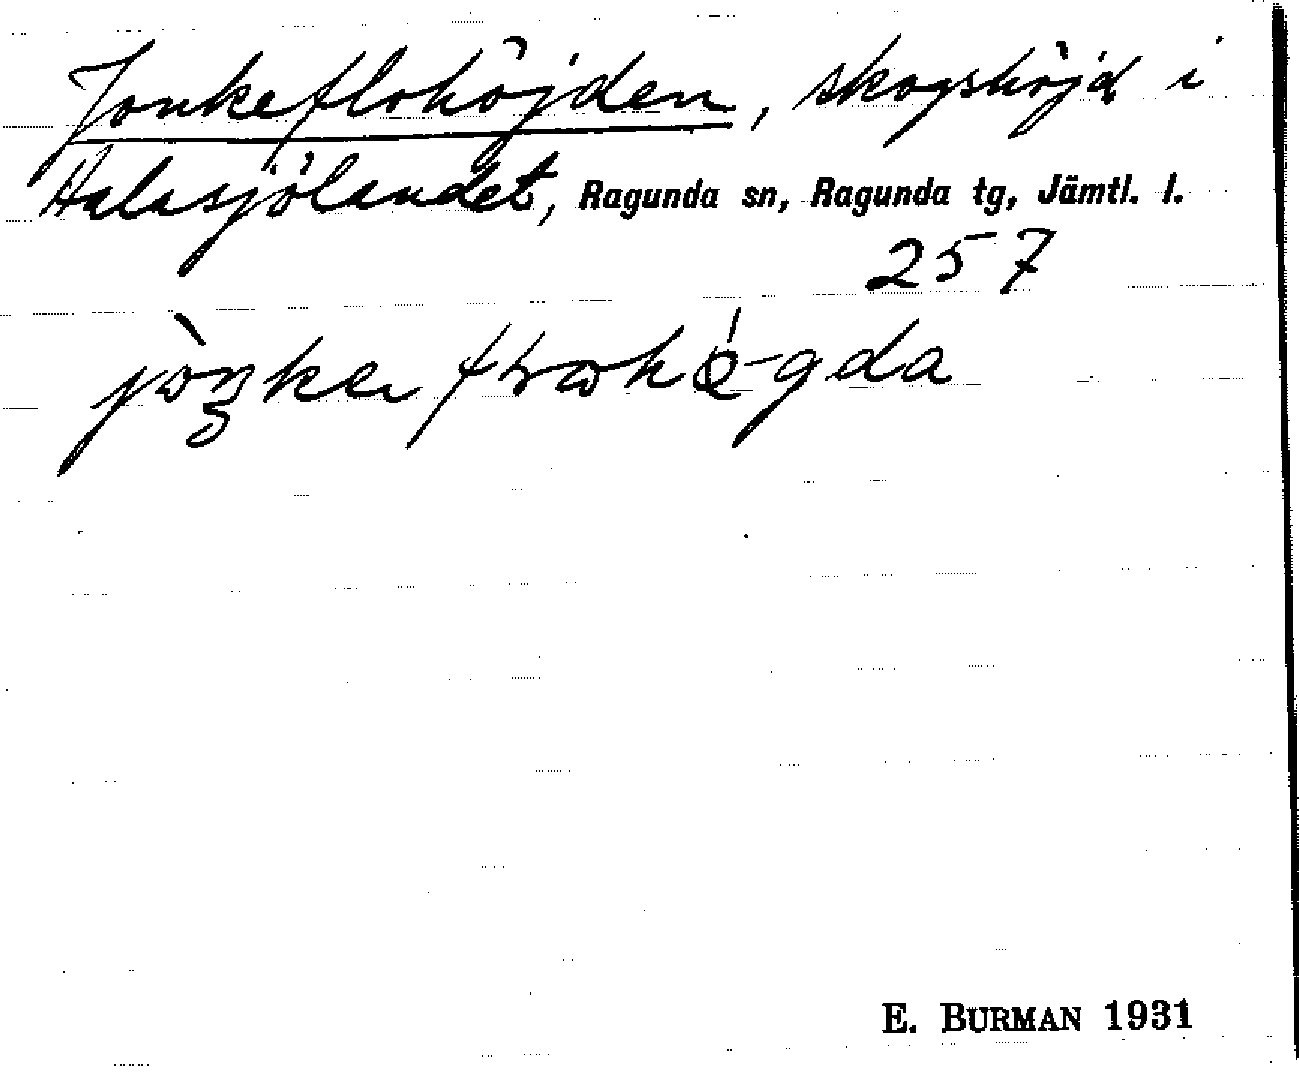 Jonkeflohöjden, skogshöjd i
Halasjölandet, Ragunda sn, Ragunda tg, Jämtl. l.
257
E. BURMAN 1931